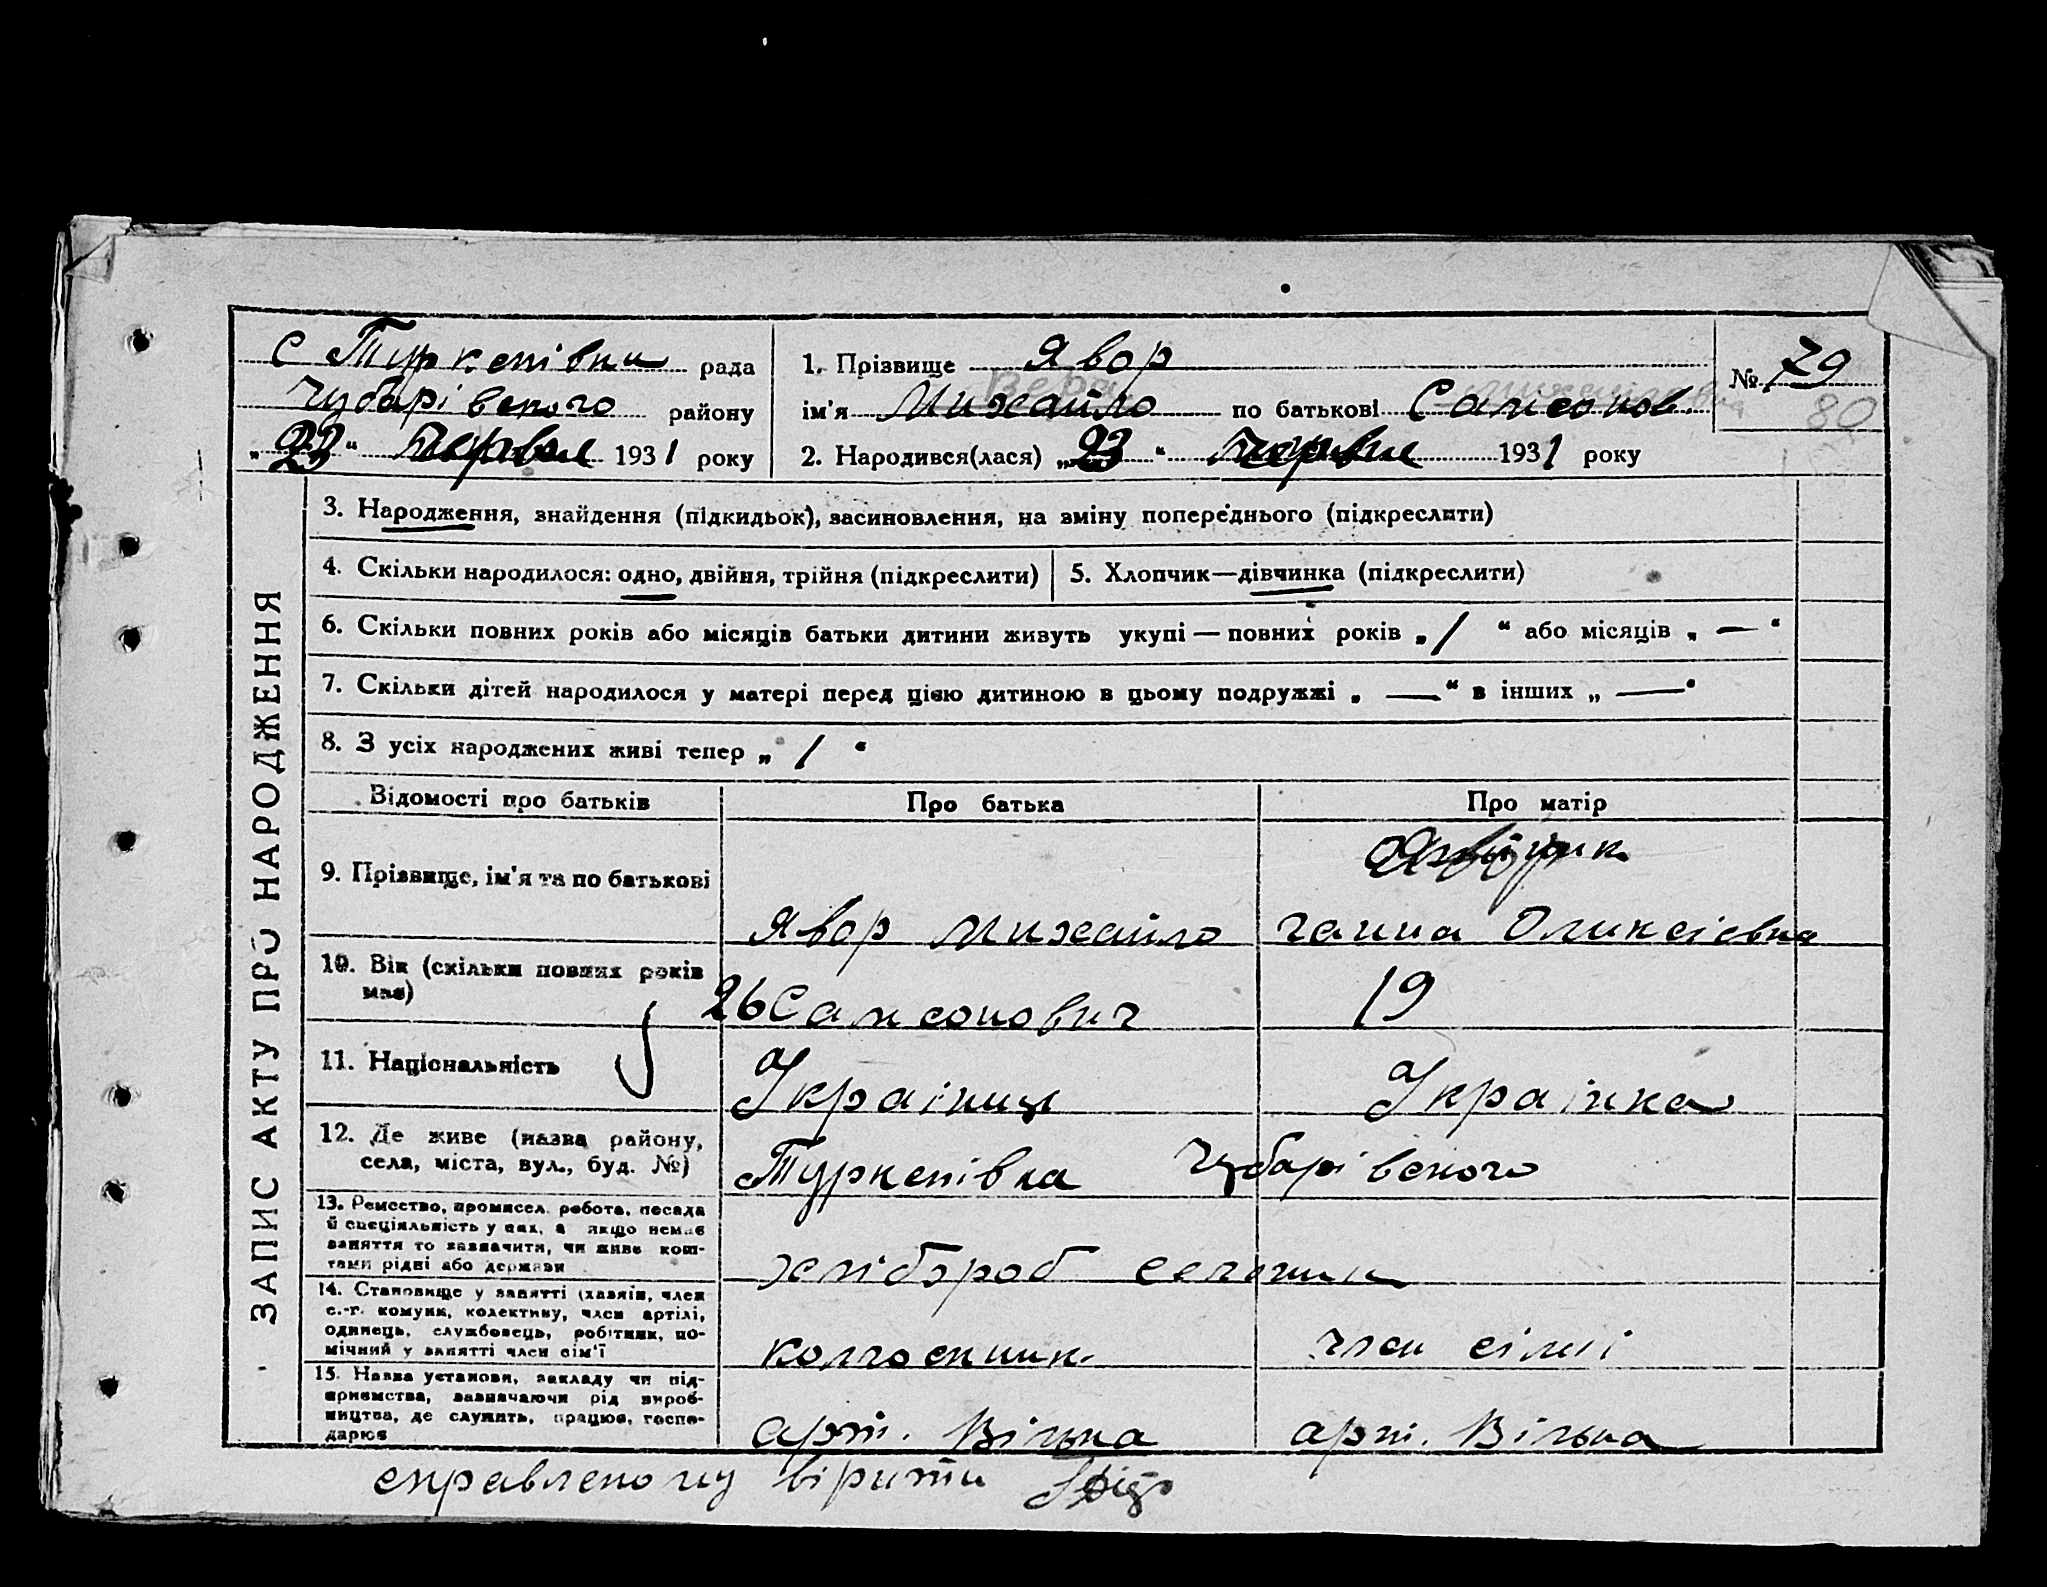 с Туркенівки рада
Чубарівского району
„23“ Червня 1931 року
1. Прізвище Явор
Вера
ім'я Михайло по батькові Самсонов.
2. Народився(лася) „23“ Червня 1931 року
№ 79
80
ЗАПИС АКТУ ПРО НАРОДЖЕННЯ
3. Народження, знайдення (підкидьок), засиновлення, на зміну попереднього (підкреслити)
4. Скільки народилося: одно, двійня, трійня (підкреслити)
5. Хлопчик—дівчинка (підкреслити)
6. Скільки повних років або місяців батьки дитини живуть укупі — повних років „ 1 “ або місяців „ — “
7. Скільки дітей народилося у матері перед цією дитиною в цьому подружжі „ — “ в інших „ — “
8. З усіх народжених живі тепер „ 1 “
Відомості про батьків
Про батька
Про матір
9. Прізвище, ім'я та по батькові
Явор Михайло
Ганна Оликсієвна
10. Вік (скільки повних років
має)
26 Самсонович
19
11. Національність
Украіниць
Украінка
12. Де живе (назва району,
села, міста, вул., буд. №)
Туркенівка Чубарівского
13. Ремество, промисел, робота, посада
й спеціяльність у них, а якщо немає
заняття то зазначити, чи живе кош-
тами рідні або держави
хлібороб
14. Становище у занятті (хазяїн, член
с.-г. комуни, колективу, член артілі,
одинець, службовець, робітник, по-
мічний у занятті член сім'ї
колгоспник
член сімьі
15. Назва установи, закладу чи під-
приємства, зазначаючи рід вироб-
ництва, де служить, працює, госпо-
дарює
арт. Вільна
арт. Вільна
справленому вірити